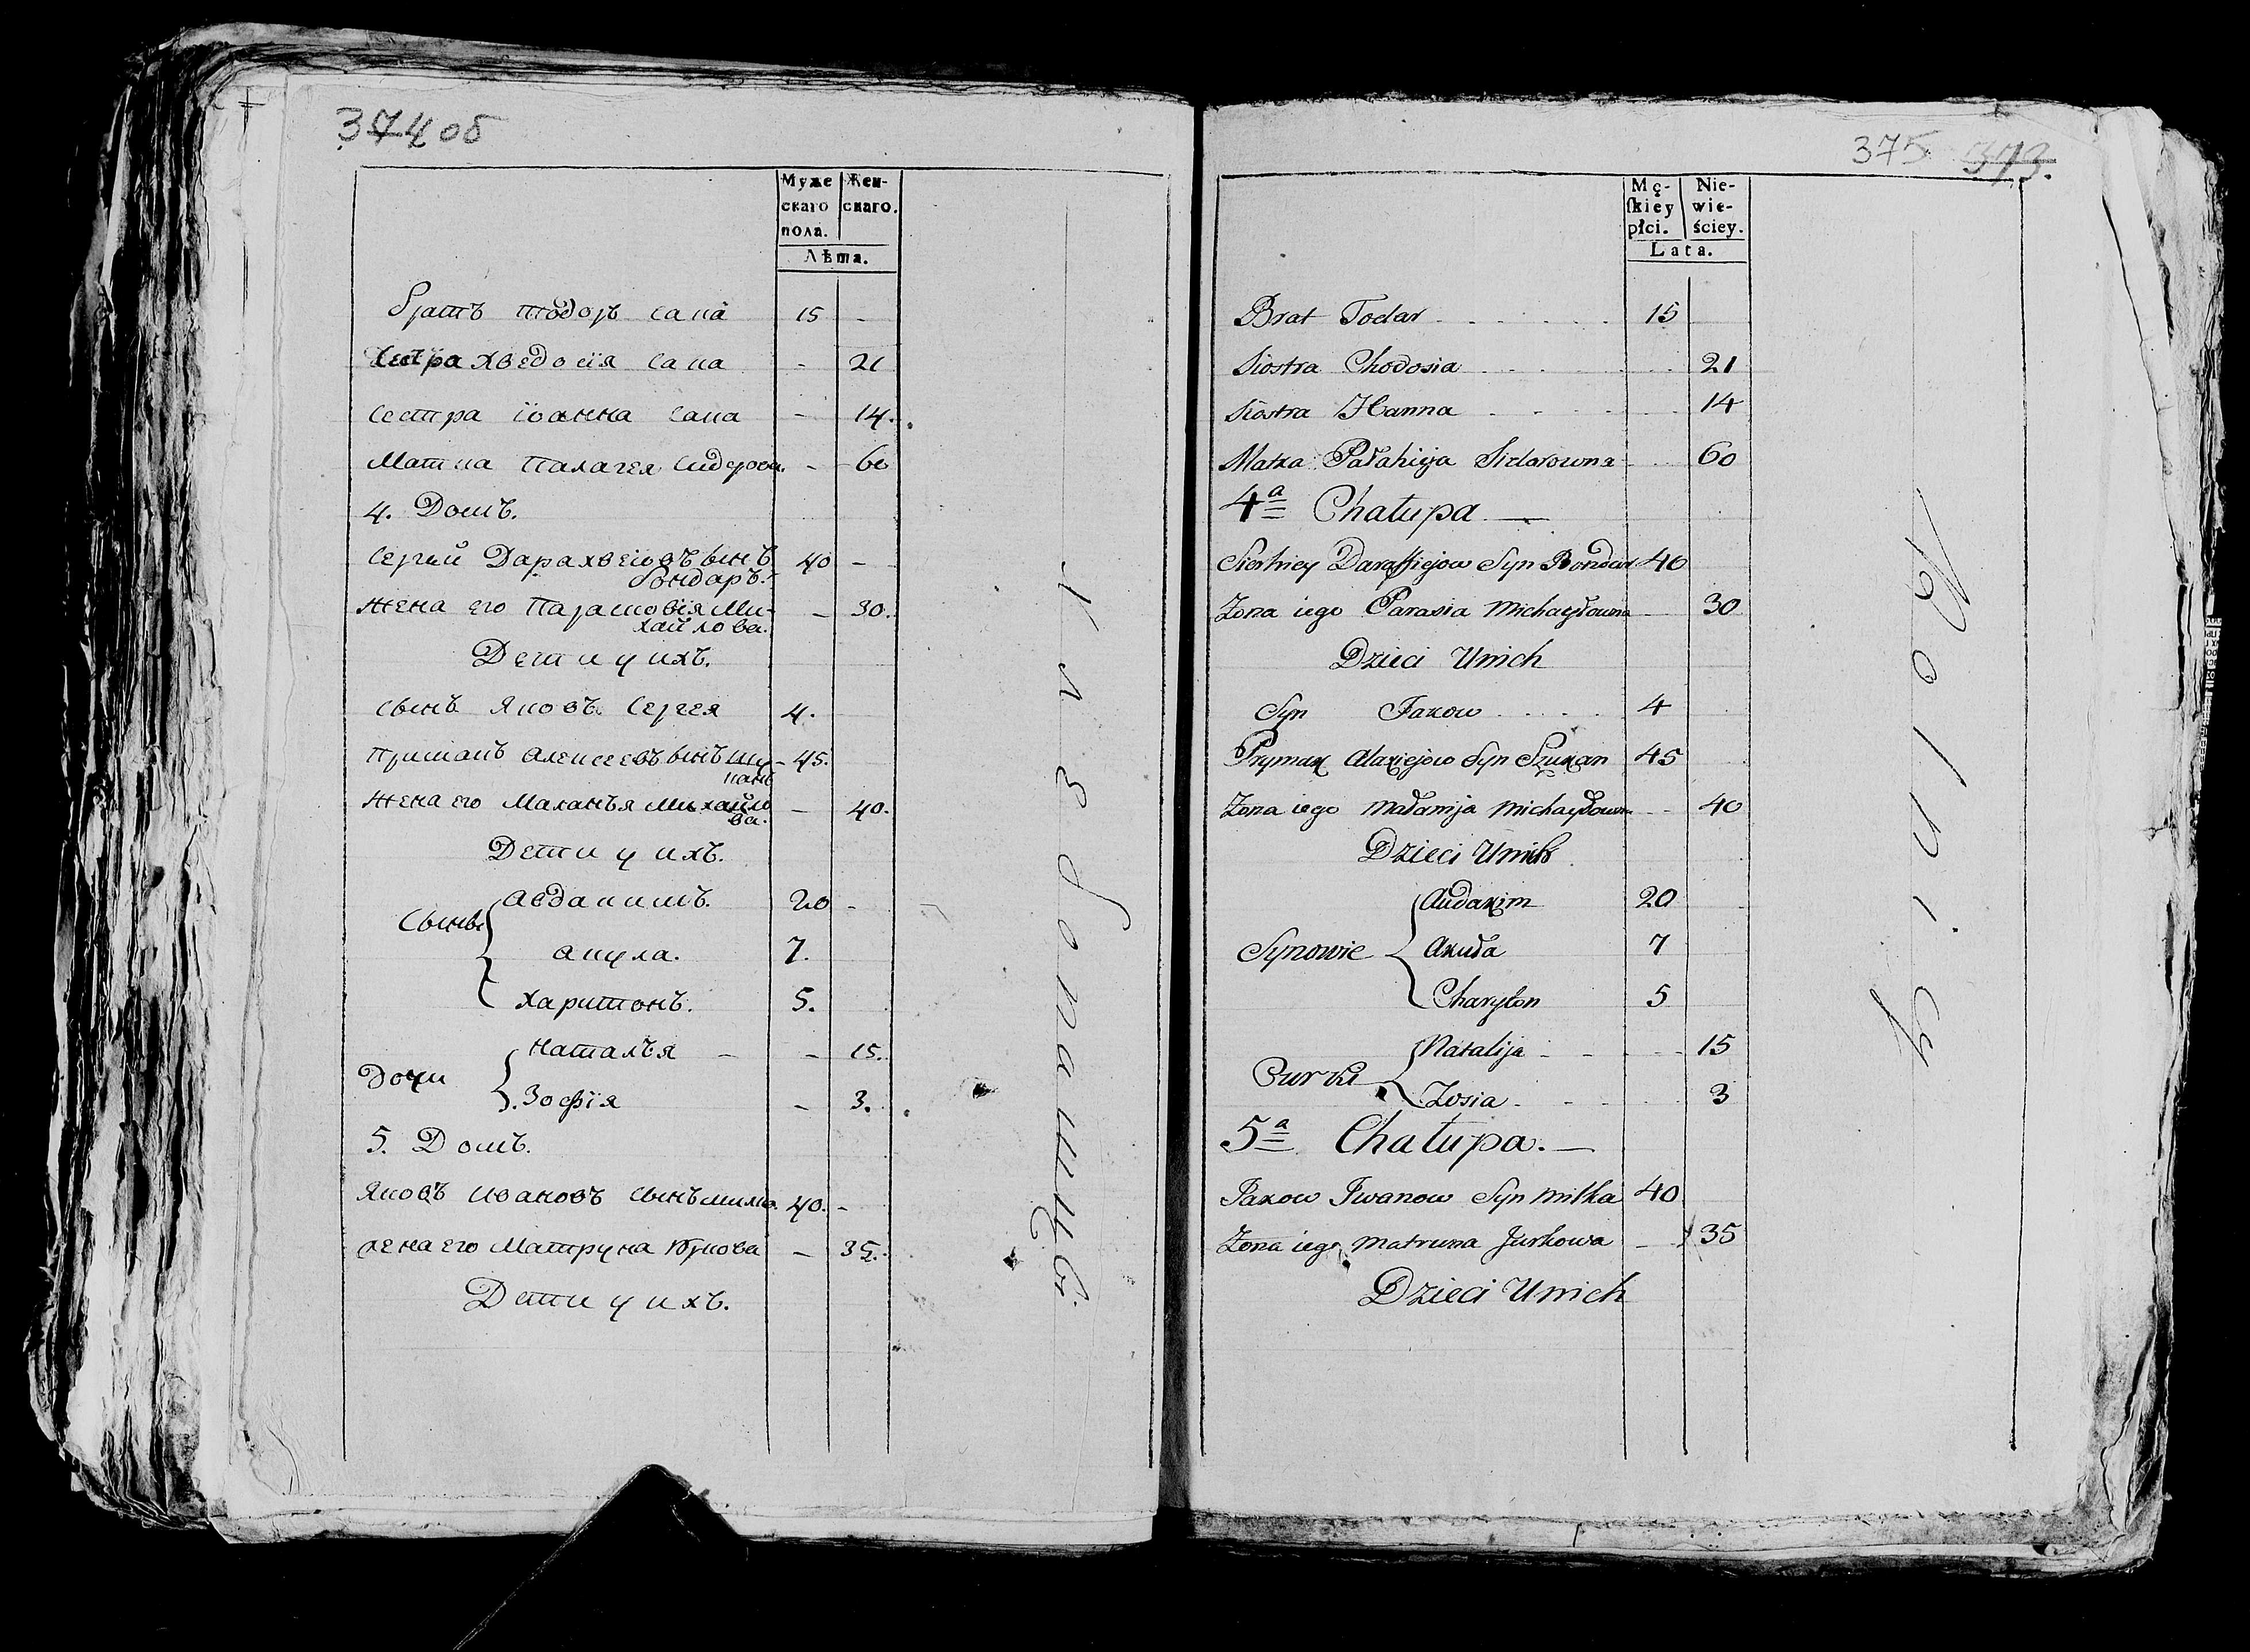 374 об
Муже
скаго
пола.
Жен-
скаго.
Лѣта.
братъ тѣодоръ сапа 15 -
Сестра хведосїя сапа - 21
сестра їоанна сапа - 14.
Матка Палагея Сидорова. - 60
4. Домъ.
Сергѣй Дарахвеіовъ сынъ 40 -
бондаръ.
жена его Парасковїя Ми- - 30.
хайлова.
Дети у ихъ.
сынъ Яковъ Сергея 4.
примакъ алексеевъ сынъ 45.
жена его Маланъя Михайло - 40.
ва.
Дети у ихъ.
Сыны
авдакимъ. 20 -
акула. 7.
харитонъ. 5.
Дочки
наталъя - - 15.
Зофїя - 3.
5. Домъ.
Яковъ ивановъ сынъ милка. 40. -
жена его Матруна Юркова - 35.
Дети у ихъ.
375 373.
Mę-
ſkiey
płci.
Nie-
wie-
ściey.
Lata.
Brat Todar 15
Siostra Chodosia 21
Siostra Hanna 14
Matka Pałahija Sidarowna 60
4a Chałupa
Sierhiey Daraffiejow Syn Bondar 40
Zona iego Parasia Michayłowna 30
Dzieci Unich
Syn Jakow 4
Prymak Alaxiejow Syn Szukan 45
Zona iego Małanija Michayłowna 40
Dzieci Unich
Synowie
Audakim 20
Akuła 7
Charyton 5
Curki
Natalija 15
Zosia 3
5a Chałupa.
Jakow Iwanow Syn Milka 40
Zona iego Matruna Jurkowa 35
Dzieci Unich